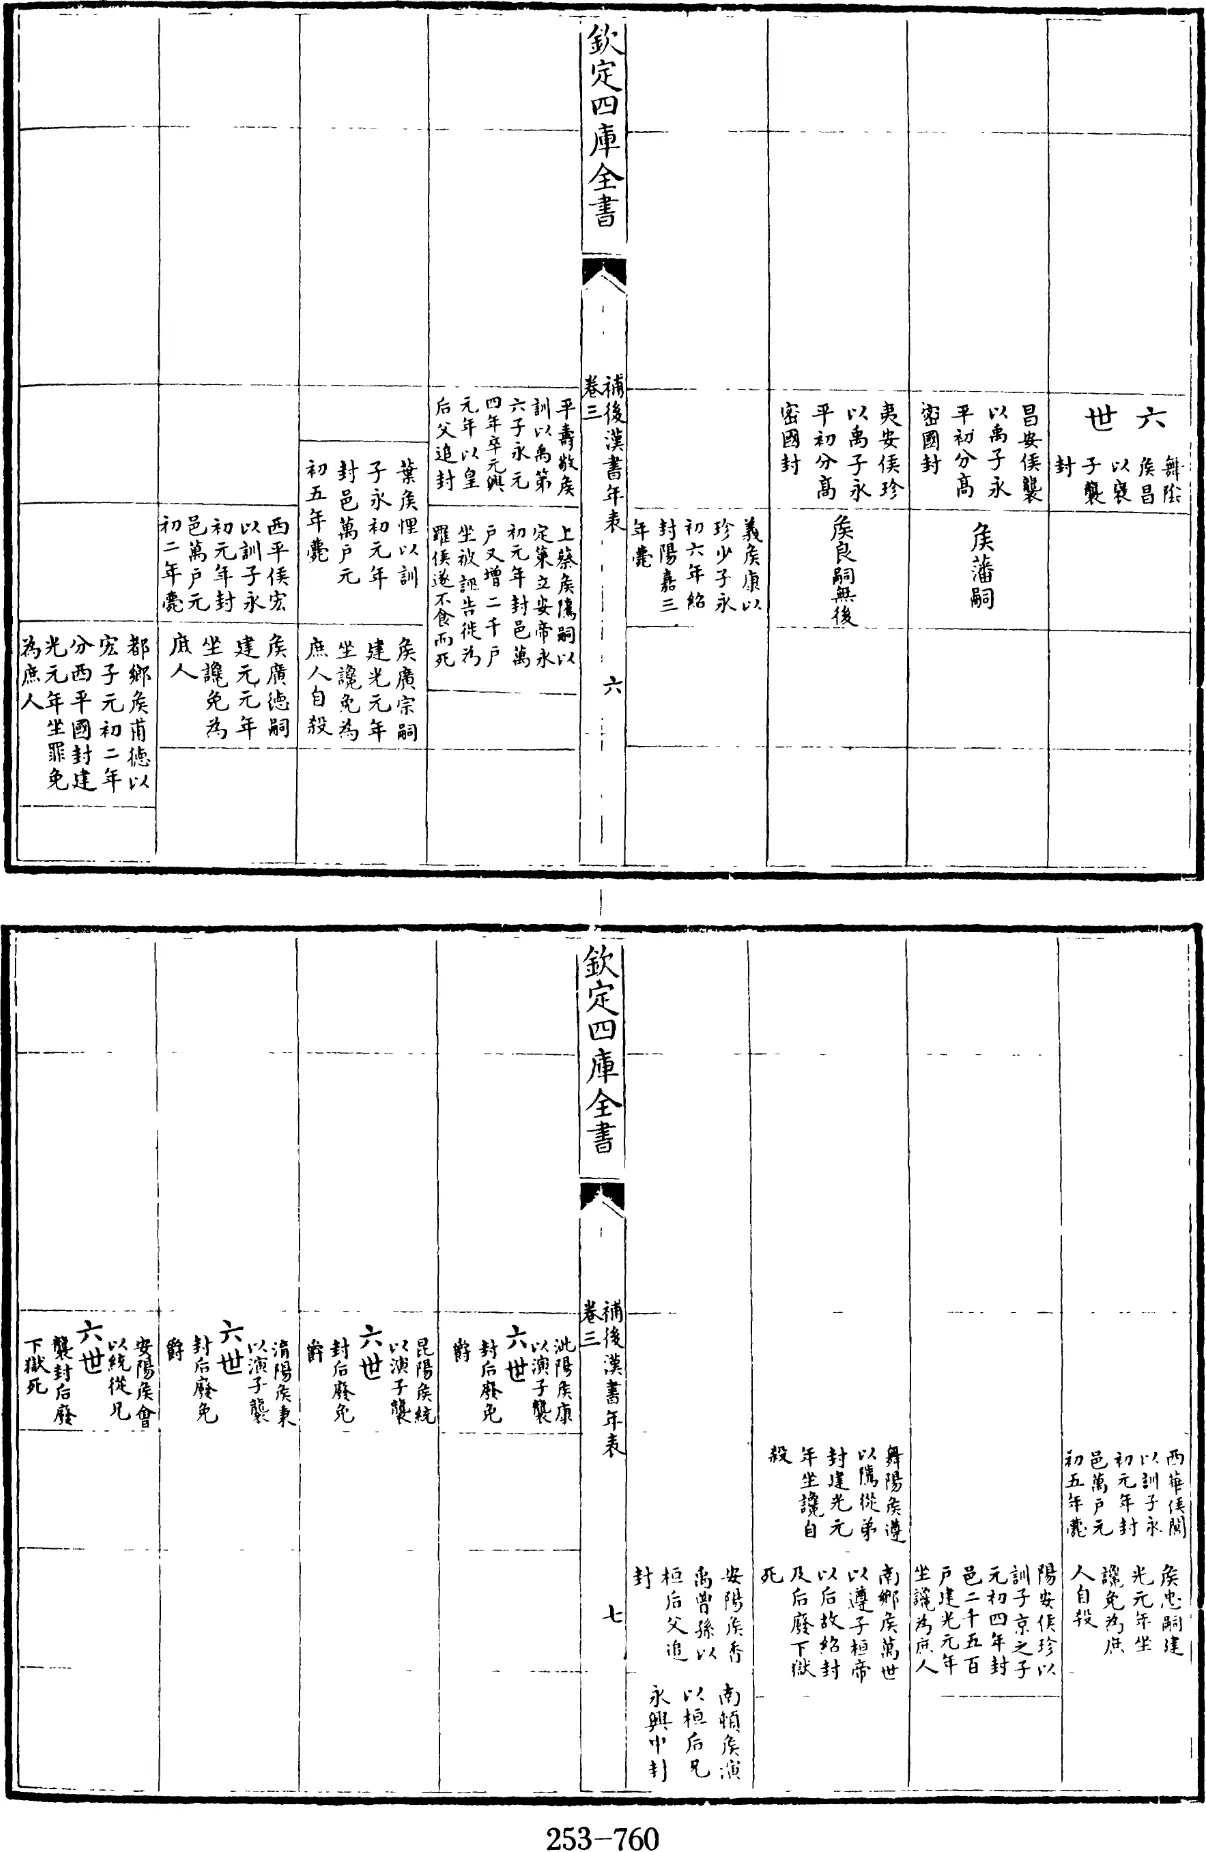 六世
舞陰
侯昌
以襄
子襲
封
昌安侯襲
以禹子永
平初分高
密國封
侯藩嗣
夷安侯珍
以禹子永
平初分高
密國封
侯良嗣無後
義侯康以
珍少子永
初六年紹
封陽嘉三
年薨
欽定四庫全書
補後漢書年表
卷三
六
平壽敬侯
訓以禹第
六子永元
四年卒元興
元年以皇
后父追封
上蔡侯隲嗣以
定策立安帝永
初元年封邑萬
户又增二千户
坐被誣告徙為
羅侯遂不食而死
葉侯悝以訓
子永初元年
封邑萬户元
初五年薨
侯廣宗嗣
建光元年
坐讒免為
庶人自殺
西平侯宏
以訓子永
初元年封
邑萬户元
初二年薨
侯廣德嗣
建元元年
坐讒免為
庶人
都鄉侯甫德以
宏子元初二年
分西平國封建
光元年坐罪免
為庶人
西華侯閶
以訓子永
初元年封
邑萬户元
初五年薨
侯忠嗣建
光元年坐
讒免為庶
人自殺
陽安侯珍以
訓子京之子
元初四年封
邑二千五百
户建光元年
坐讒為庶人
舞陽侯遵
以隲從弟
封建光元
年坐讒自
殺
南鄉侯萬世
以遵子桓帝
以后故紹封
及后廢下獄
死
安陽侯香
禹曾孫以
桓后父追
封
南頓侯演
以桓后兄
永興中封
欽定四庫全書
補後漢書年表
卷三
七
沘陽侯康
以演子襲
六世
封后廢免
爵
昆陽侯統
以演子襲
六世
封后廢免
爵
淯陽侯秉
以演子襲
六世
封后廢免
爵
安陽侯會
以統從兄
六世
襲封后廢
下獄死
253-760